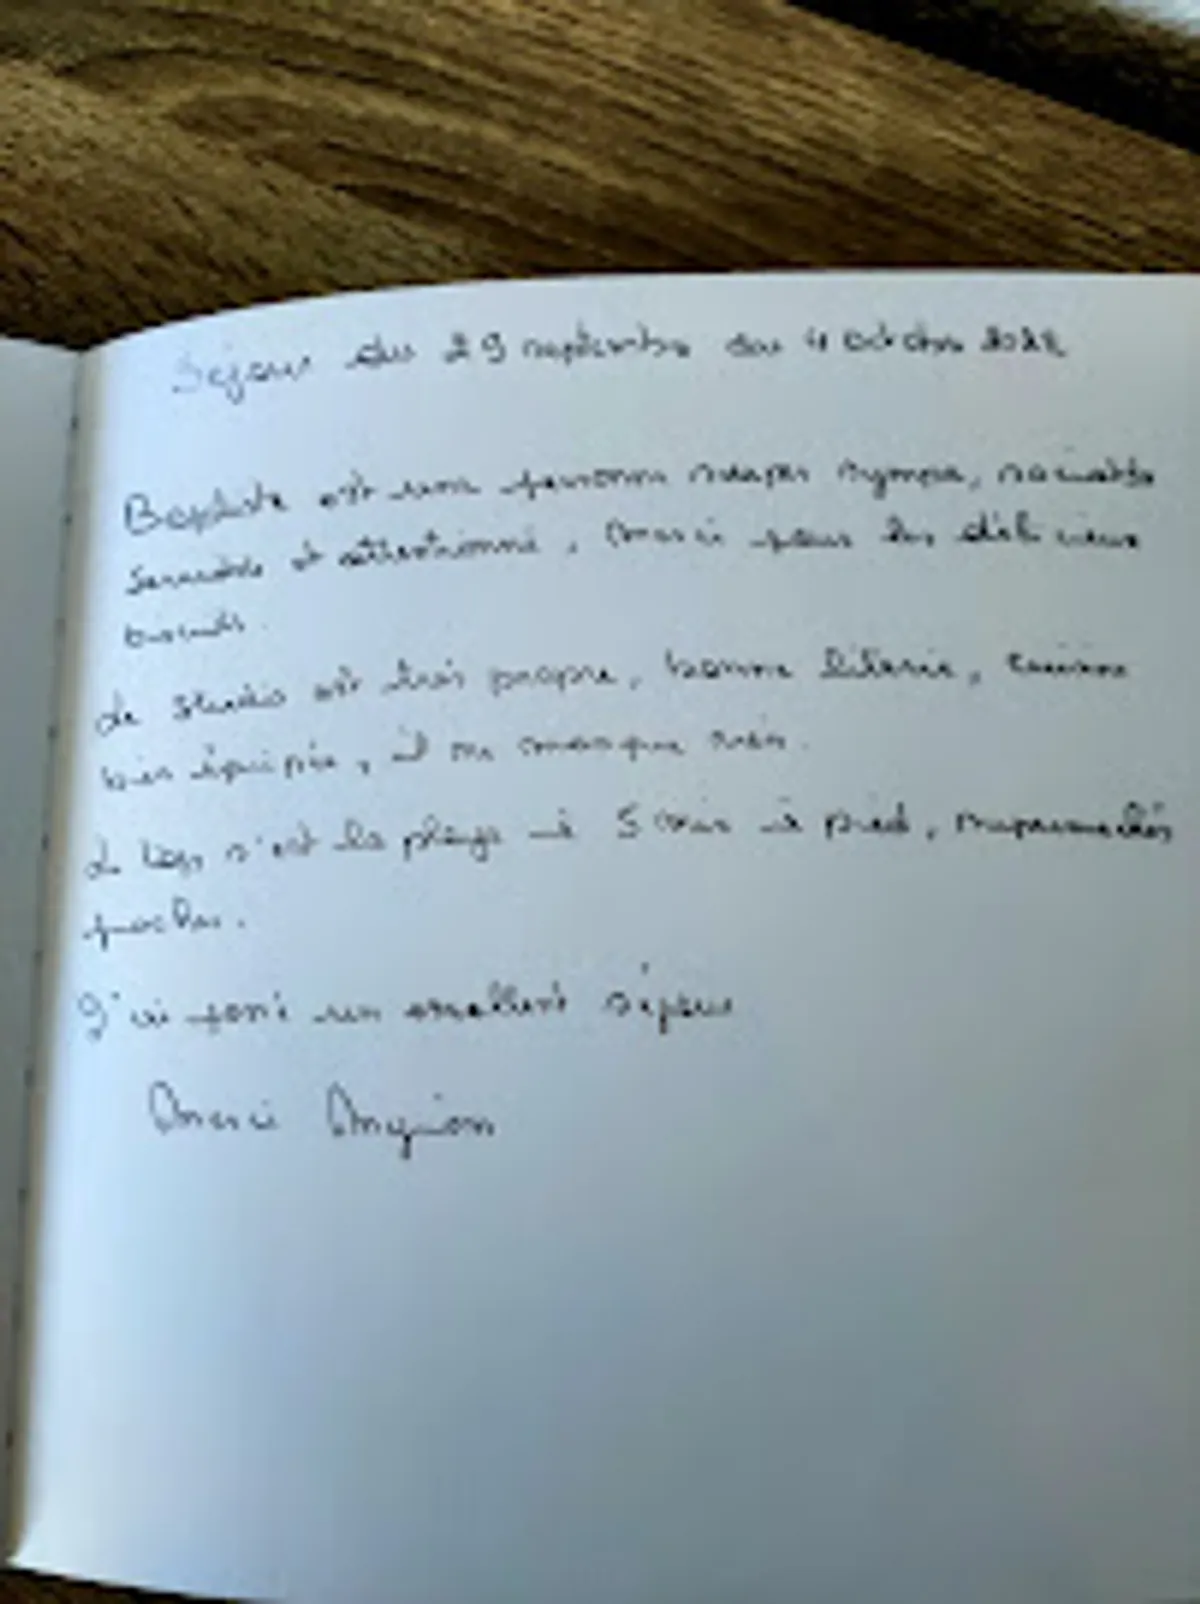 Séjour du 29 septembre au 4 octobre
Baptiste est une personne super sympa, sociable
serviable et attentionné, merci pour les délicieux
biscuits.
Le studio est très propre, bonne literie, cuisine
bien équipée, il ne manque rien.
Le top c'est la plage à 5 min à pied, supermarchés
proches.
J'ai passé un excellent séjour
Merci